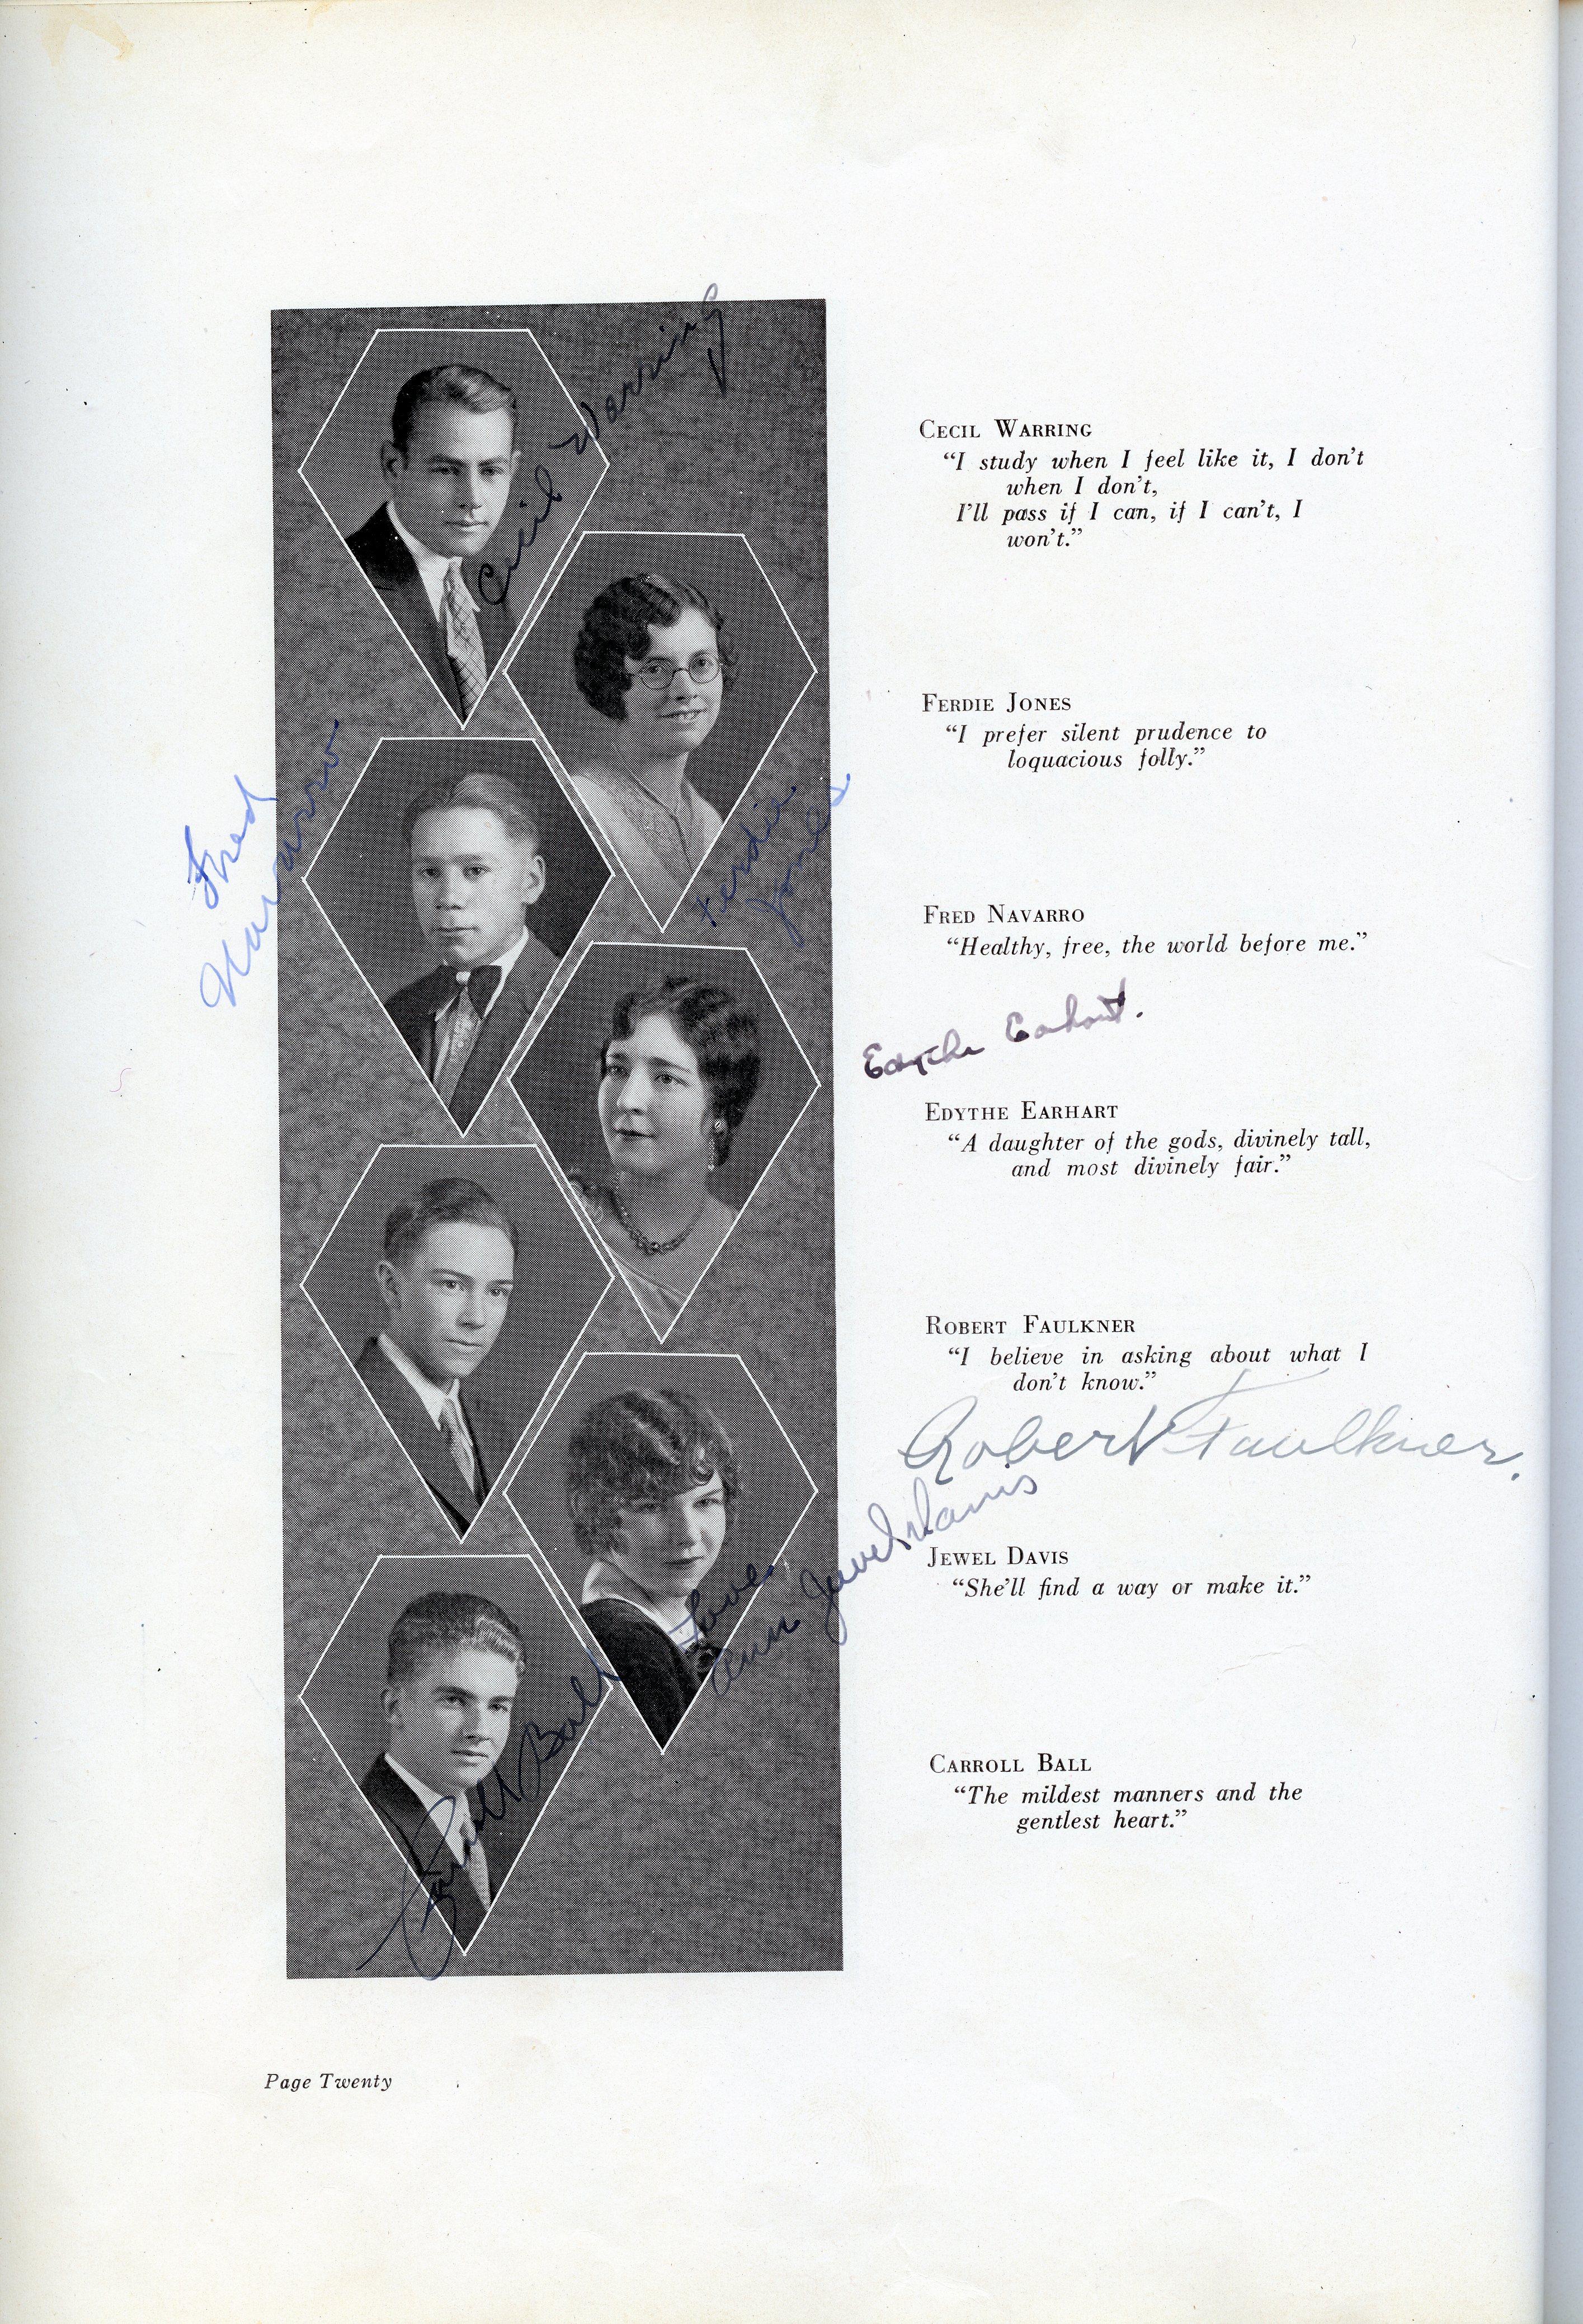 Cecil Warring
CECIL WARRING
“I study when I feel like it, I don’t
when I don’t,
I’ll pass if I can, if I can’t, I
won’t.”
FERDIE JONES
“I prefer silent prudence to
loquacious folly.”
Ferdie
Jones
Fred
Navarro
FRED NAVARRO
“Healthy, free, the world before me.”
Edythe Earhart.
EDYTHE EARHART
“A daughter of the gods, divinely tall,
and most divinely fair.”
ROBERT FAULKNER
“I believe in asking about what I
don’t know.”
Robert Faulkner.
JEWEL DAVIS
“She’ll find a way or make it.”
Love
Ann Jewel Davis
Carroll Ball
CARROLL BALL
“The mildest manners and the
gentlest heart.”
Page Twenty